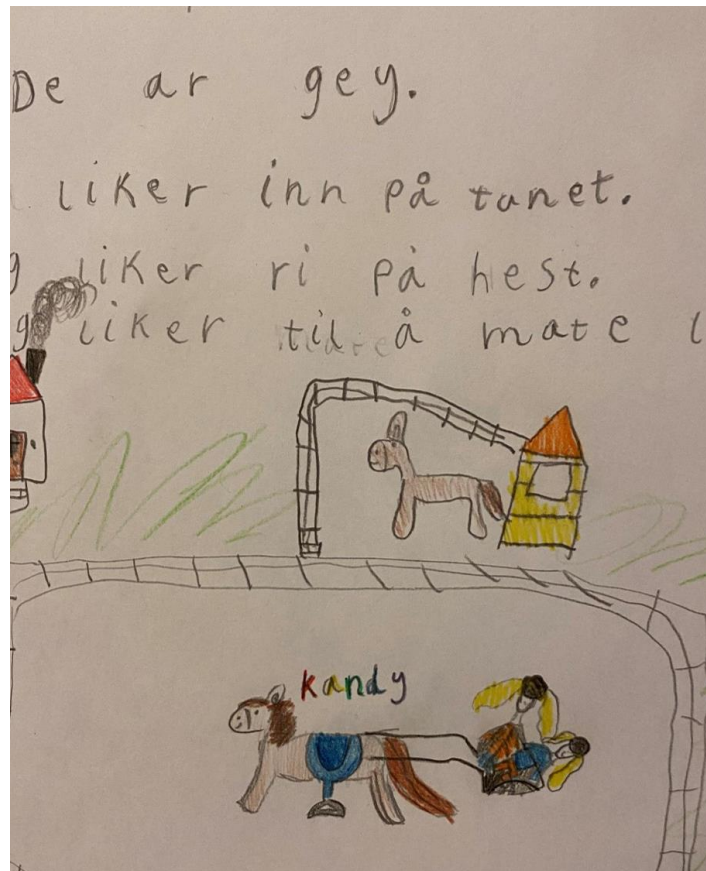 De ar gey.
liker inn på tunet.
g liker ri på hest.
g liker til å mate l
kandy